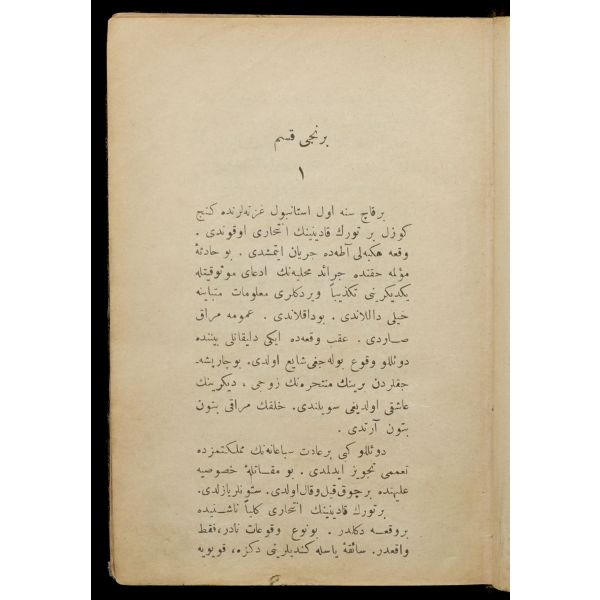 برنجی قسم
١
برقاچ سنه اول استانبول غزته‌لرنده کنج
کوزل بر تورك قادینینك انتحاری اوقوندی .
وقعه هکبه‌لی آطه‌ده جریان ایتمشدی . بو حادثهٔ
مؤلمه حقنده جرائد محلیه‌نك ادعای موثوقیتله
یکدیکرینی تکذیباً ویردکلری معلومات متباینه
خیلی داللاندی . بوداقلاندی . عمومه مراق
صاردی . عقب وقعه‌ده ایکی دلیقانلی بیننده
دوئللو وقوع بوله‌جغی شایع اولدی. بوچارپیشه‌
جقلردن برینك منتحره‌نك زوجی ، دیکرینك
عاشقی اولدیغی سویلندی. خلقك مراقی بتون
بتون آرتدی .
دوئللو کبی برعادت سباعانه‌نك مملکتمزده
تعممی تجویز ایدلمدی . بو مقاتلهٔ خصوصیه
علیهنده برچوق قیل وقال اولدی. ستونلر یازلدی.
برتورك قادینینك انتحاری کلیاً ناشنیده
بروقعه دکلدر . بونوع وقوعات نادر، فقط
واقعدر. سائقهٔ یأسله کندیلرینی دکزه، قویویه